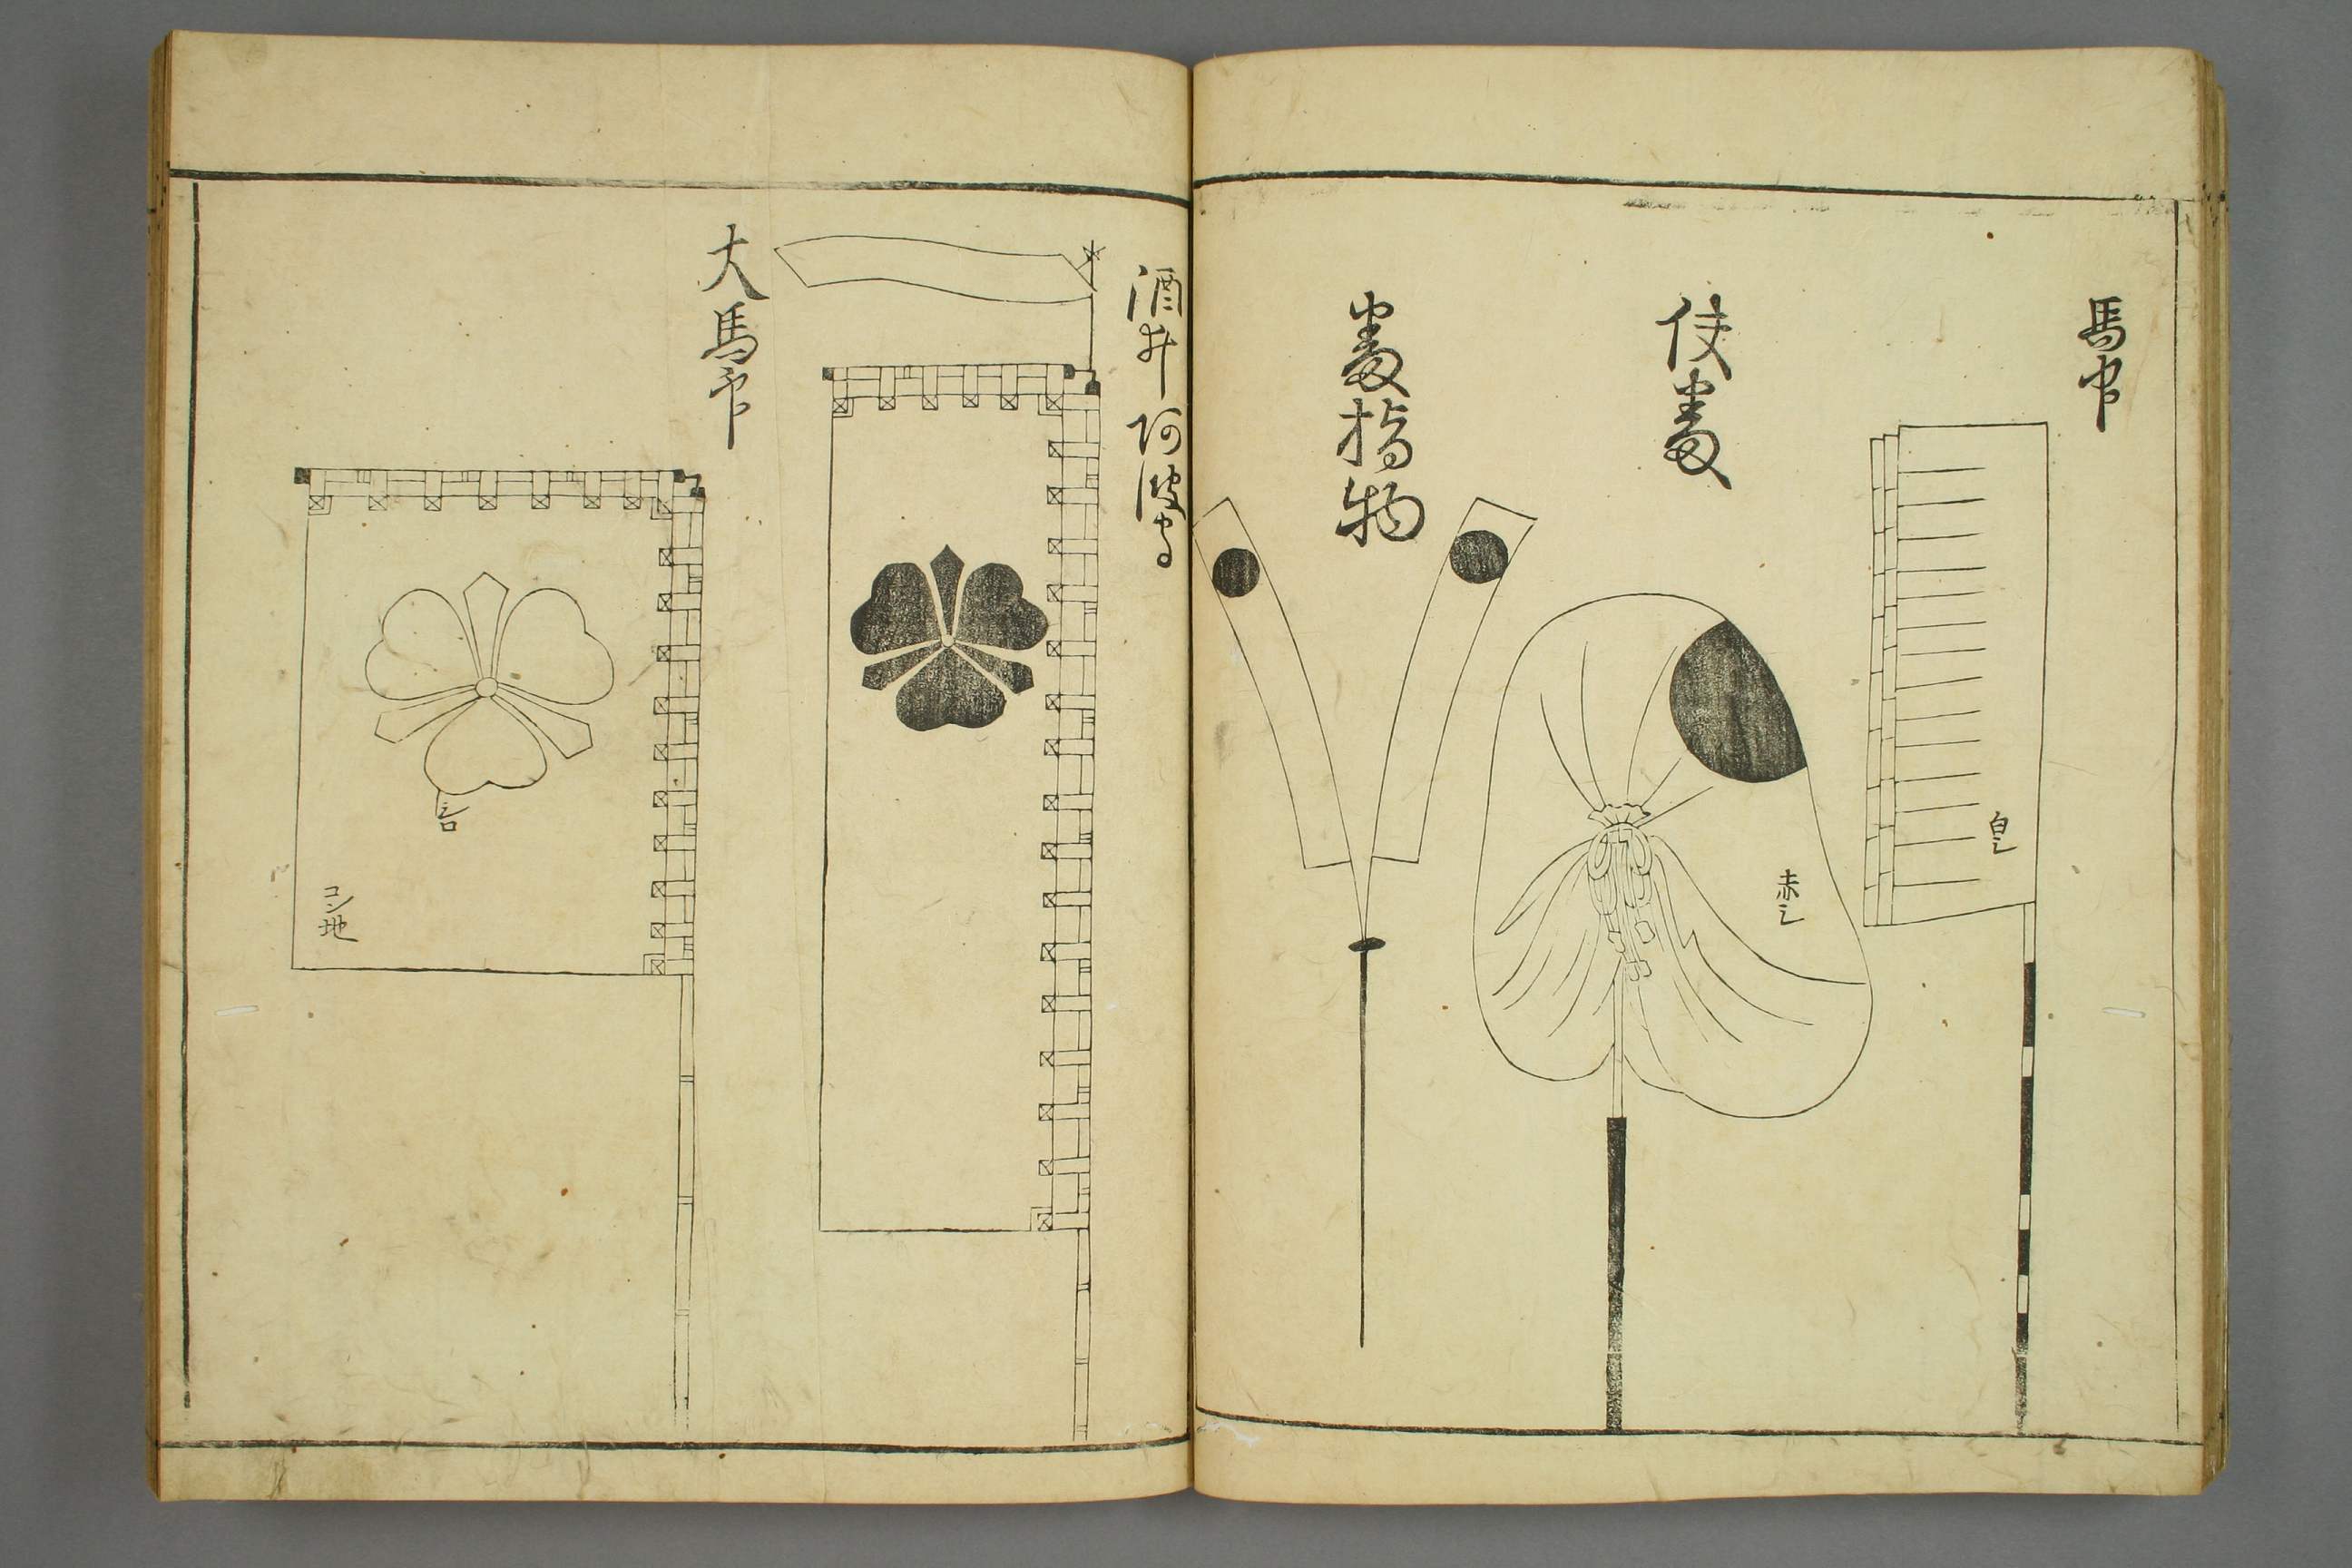 馬印
白シ
使番
赤シ
番指物
酒井阿波守
大馬印
白
コン地